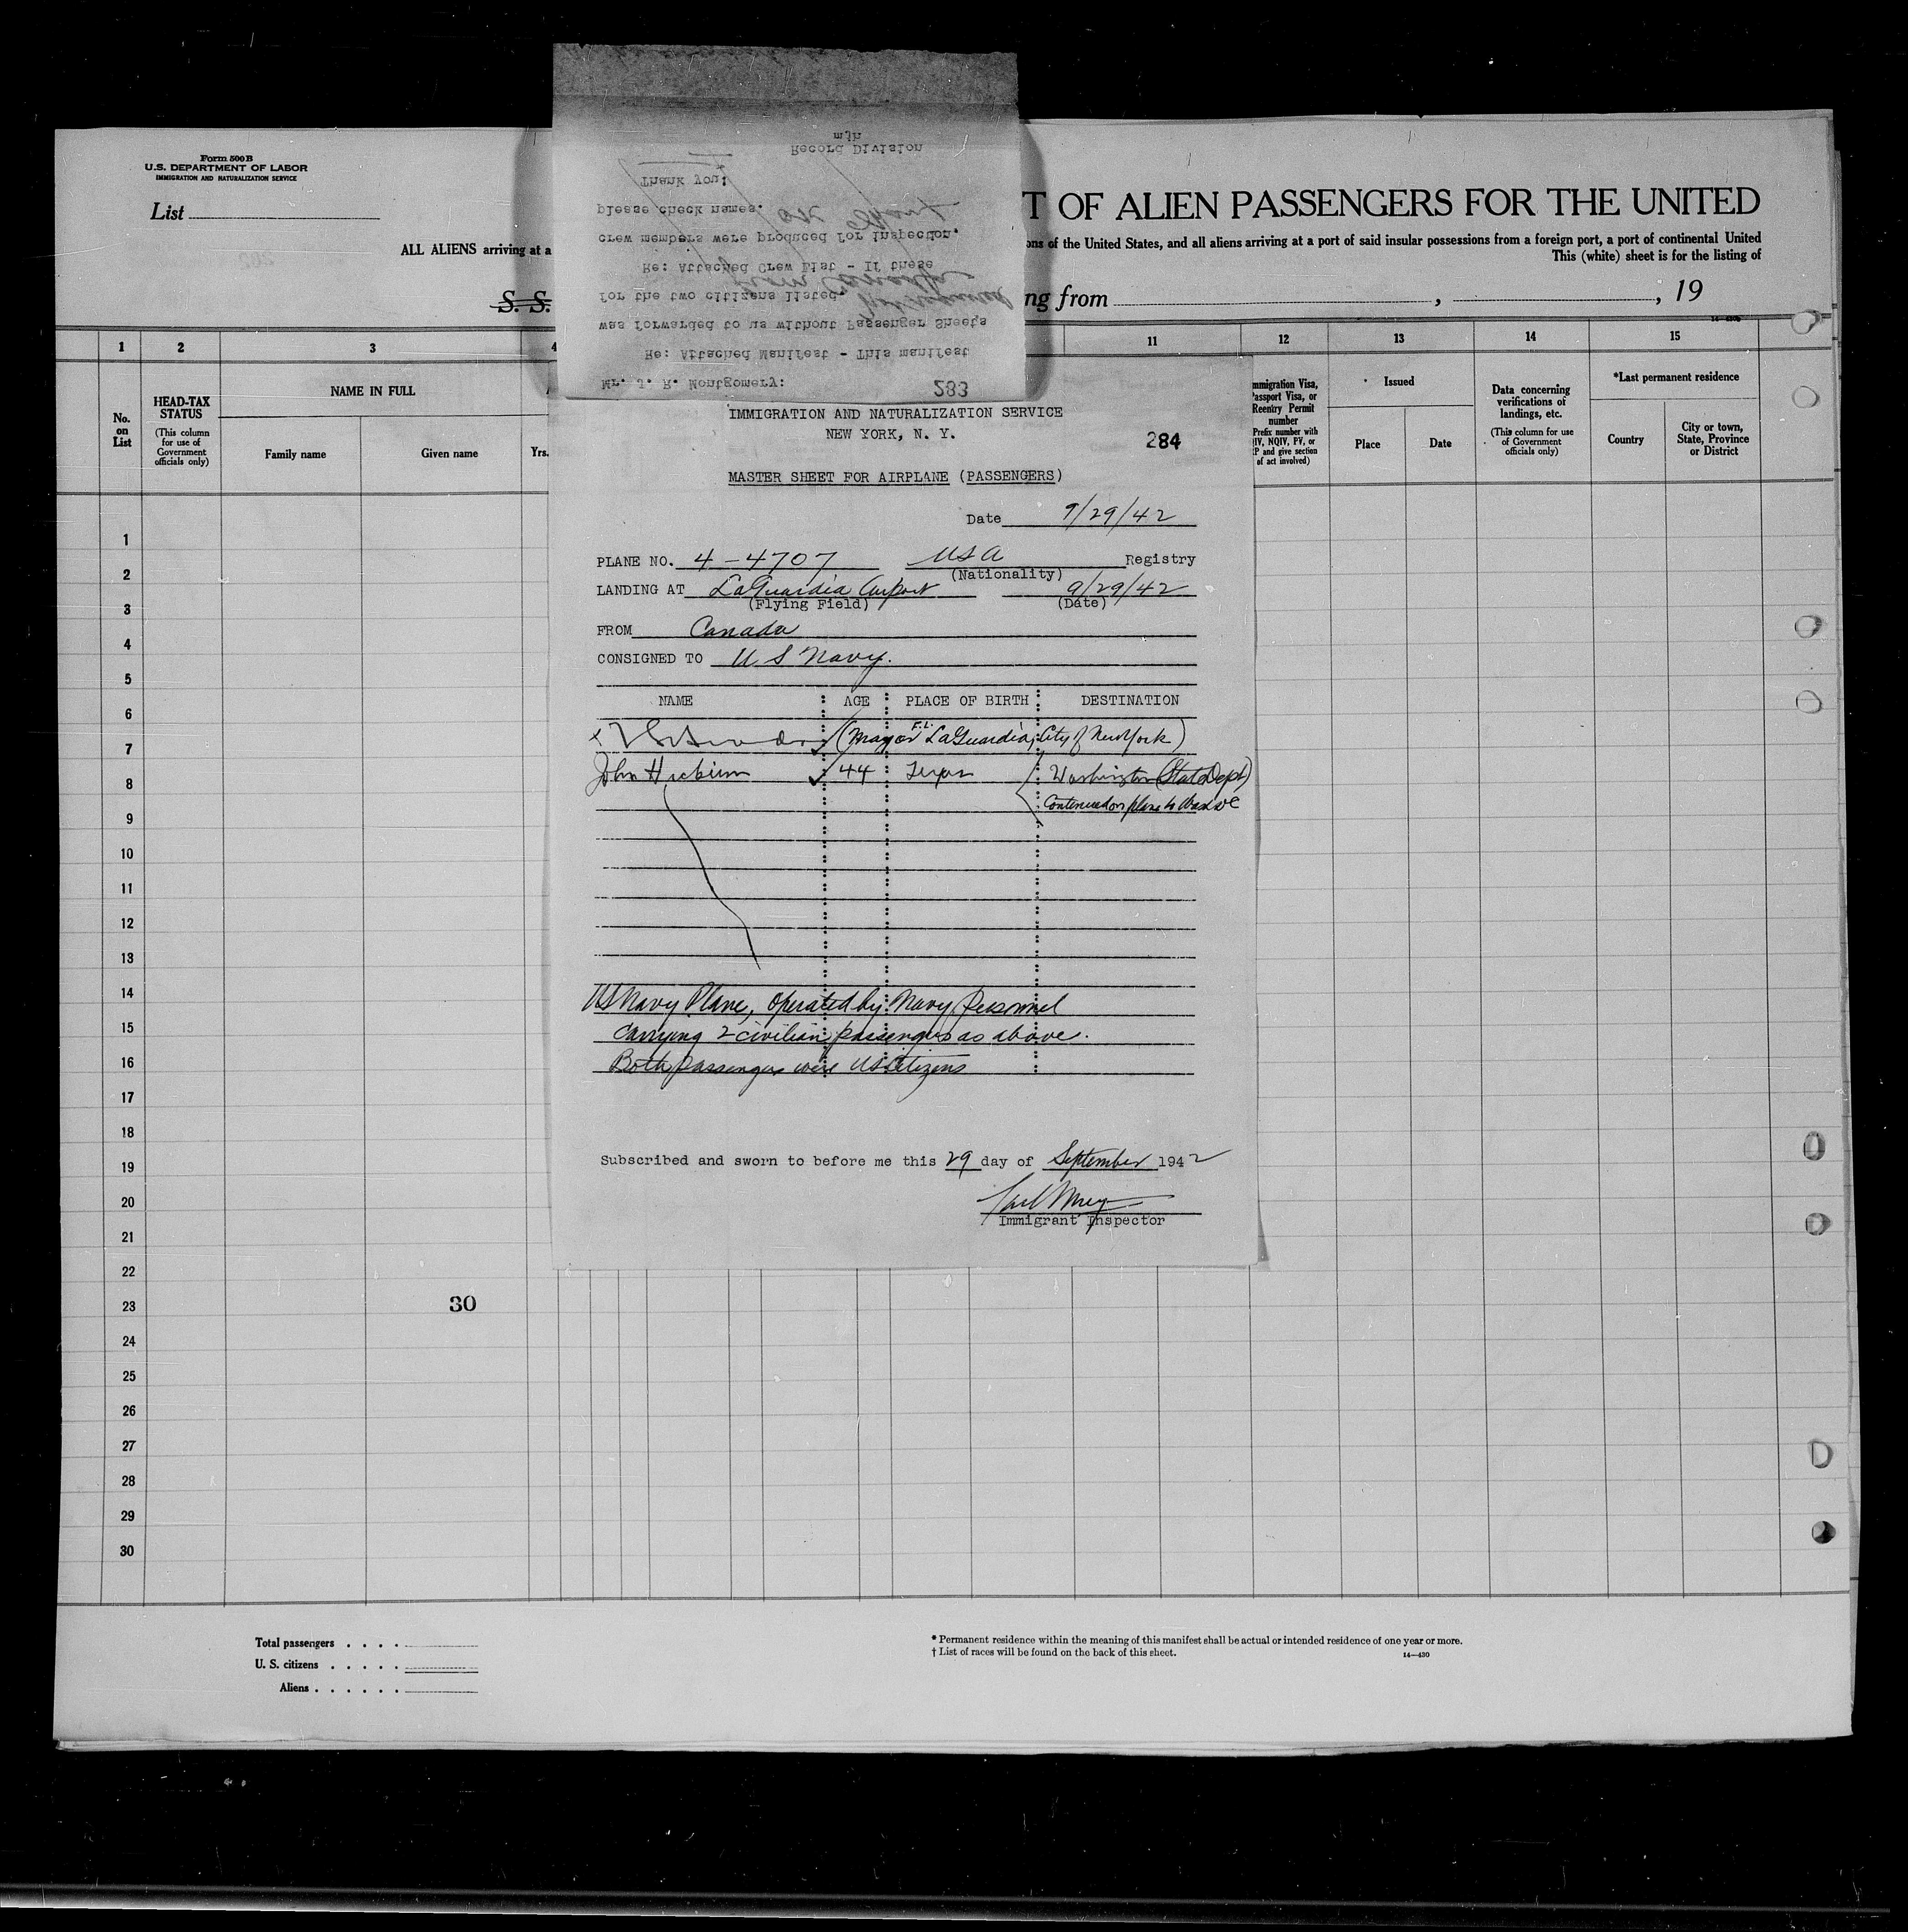 Form 500 B
U.S. DEPARTMENT OF LABOR
IMMIGRATION AND NATURALIZATION SERVICE
List
T OF ALIEN PASSENGERS FOR THE UNITED
ALL ALIENS arriving at a
ons of the United States, and all aliens arriving at a port of said insular possessions from a foreign port, a port of continental United
This (white) sheet is for the listing of
S. S.
ng from , , 19
Mr. J. R. Montgomery: 283
Re: Attached Manifest - This manifest
was forwarded to us without Passenger Sheets
for the two citizens listed. Not required
from Canada
Re: Attached Crew List - If these
crew members were produced for inspection,
please check names. OK
Thank you!
Record Division
mjh
1 2 3 4 11 12 13 14 15
No. on List
HEAD-TAX STATUS
(This column for use of Government officials only)
NAME IN FULL
Family name Given name
Yrs.
mmigration Visa,
assport Visa, or
Reentry Permit
number
Prefix number with
IV, NQIV, PV, or
P and give section
of act involved)
Issued
Place Date
Data concerning verifications of landings, etc.
(This column for use of Government officials only)
*Last permanent residence
Country
City or town, State, Province or District
IMMIGRATION AND NATURALIZATION SERVICE
NEW YORK, N. Y.
284
MASTER SHEET FOR AIRPLANE (PASSENGERS)
Date 9/29/42
PLANE NO. 4-4707 USA Registry
(Nationality)
LANDING AT LaGuardia Airport 9/29/42
(Flying Field) (Date)
FROM Canada
CONSIGNED TO U S Navy.
NAME AGE PLACE OF BIRTH DESTINATION
(Mayor F.L. LaGuardia, City of New York)
John Hickerson 44 Texas Washington (State Dept)
Continued on plane to Wash DC
US Navy Plane, operated by Navy Personnel
carrying 2 civilian passengers as above.
Both passengers were US Citizens
Subscribed and sworn to before me this 29 day of September 1942
Immigrant Inspector
1
2
3
4
5
6
7
8
9
10
11
12
13
14
15
16
17
18
19
20
21
22
23
24
25
26
27
28
29
30
30
Total passengers
U. S. citizens
Aliens
* Permanent residence within the meaning of this manifest shall be actual or intended residence of one year or more.
† List of races will be found on the back of this sheet.
14—430